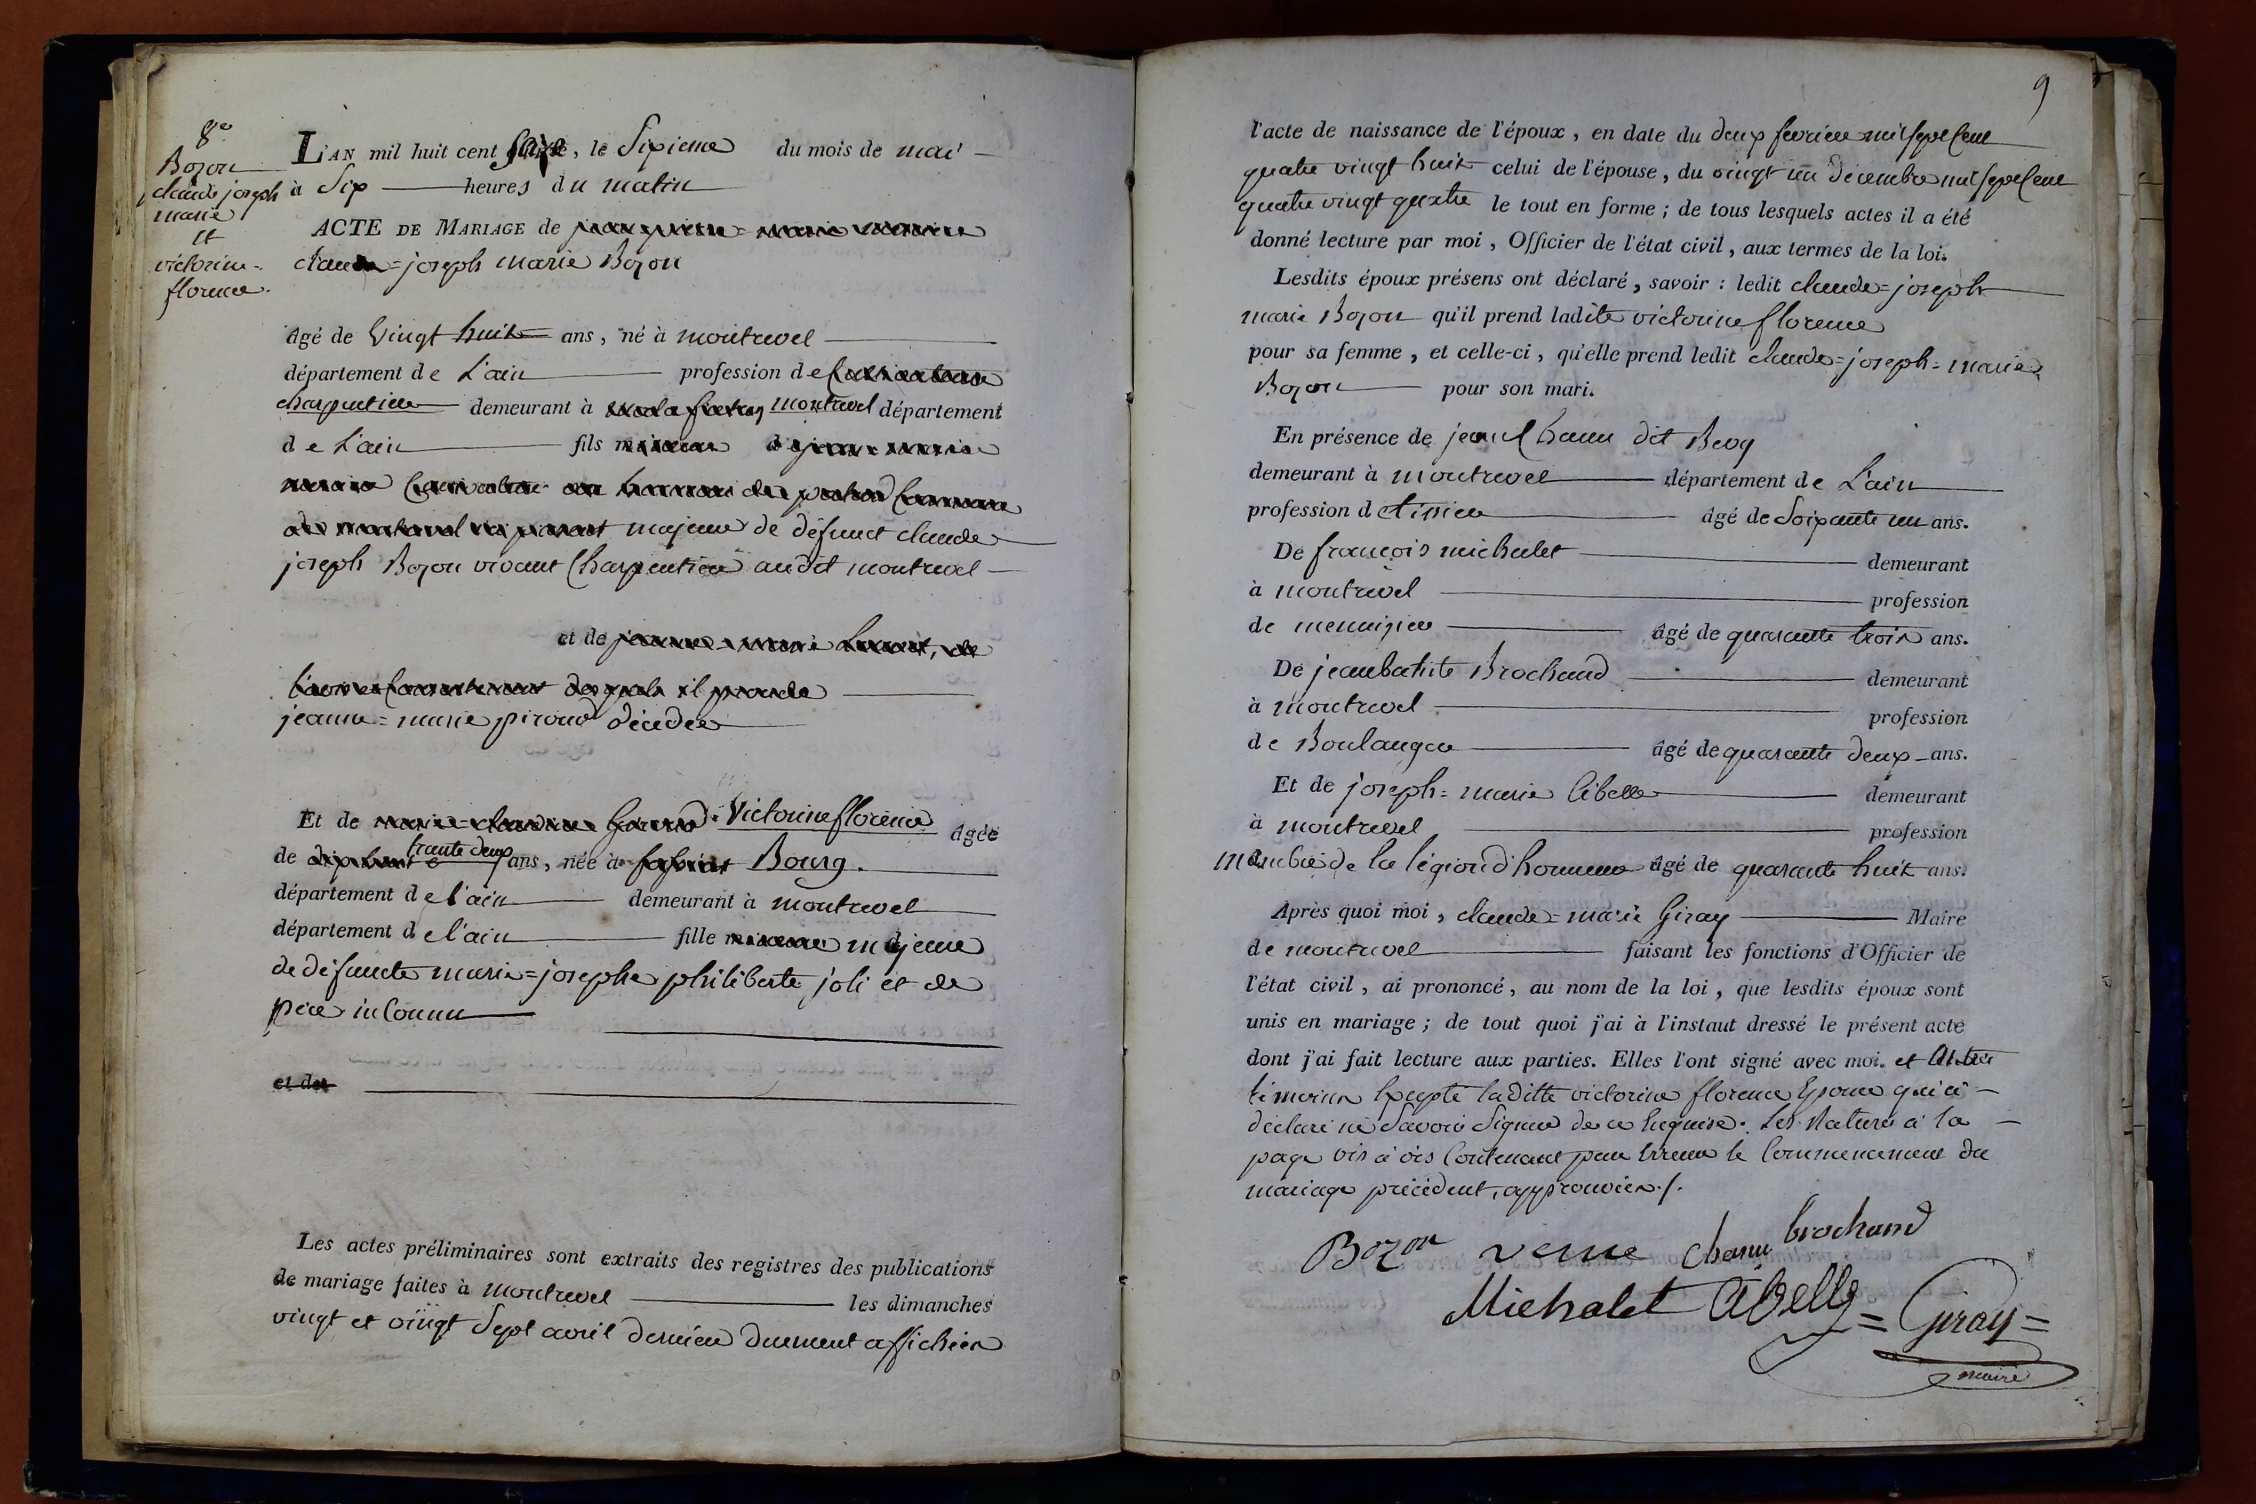 8e
Bozon
claude joseph
marie
et
victorine
florence.
L'AN mil huit cent seize, le Sixieme du mois de mai
à Six heures du matin
ACTE DE MARIAGE de
claude = joseph marie Bozon
âgé de vingt huit ans, né à montrevel
département de L'ain profession de
charpentier demeurant à montrevel département
de L'ain fils
majeur de défunct claude
joseph Bozon vivant Charpentier audit montrevel
et de
jeanne = marie piroud décédée
Et de victorine florence âgée
de trante deux ans, née à Bourg.
département de l'ain demeurant à montrevel
département de l'ain fille majeure
de défuncte marie = josephe philiberte joli et de
père inconnu
et de
Les actes préliminaires sont extraits des registres des publications
de mariage faites à montrevel les dimanches
vingt et vingt Sept avril dernier duement affichées
9
l'acte de naissance de l'époux, en date du deux fevrier mil sept Cent
quatre vingt huit celui de l'épouse, du vingt un décembre mil sept Cent
quatre vingt quatre le tout en forme ; de tous lesquels actes il a été
donné lecture par moi, Officier de l'état civil, aux termes de la loi.
Lesdits époux présens ont déclaré, savoir : ledit claude = joseph
marie Bozon qu'il prend ladite victorine florence
pour sa femme, et celle-ci, qu'elle prend ledit claude = joseph = marie
Bozon pour son mari.
En présence de jean Chanu dit
demeurant à montrevel département de L'ain
profession de tissier âgé de Soixante un ans.
De françois michalet demeurant
à montrevel profession
de menuizier âgé de quarante trois ans.
De jeanbatiste Brochand demeurant
à montrevel profession
de Boulanger âgé de quarante deux ans.
Et de joseph = marie abelle demeurant
à montrevel profession
membre de la légion d'honneur âgé de quarante huit ans.
Après quoi moi, claude = marie Giray Maire
de montrevel faisant les fonctions d'Officier de
l'état civil, ai prononcé, au nom de la loi, que lesdits époux sont
unis en mariage ; de tout quoi j'ai à l'instant dressé le présent acte
dont j'ai fait lecture aux parties. Elles l'ont signé avec moi. et
témoins Excepté laditte victorine florence Epouse qui a
déclaré ne Savoir Signer de ce Enquise. Les Ratures à la
page vis à vis Contenant par Erreur le Commencement du
mariage précédent, approuvées ./.
Bozon chanu brochand
Michalet Abelle = Giray =
maire